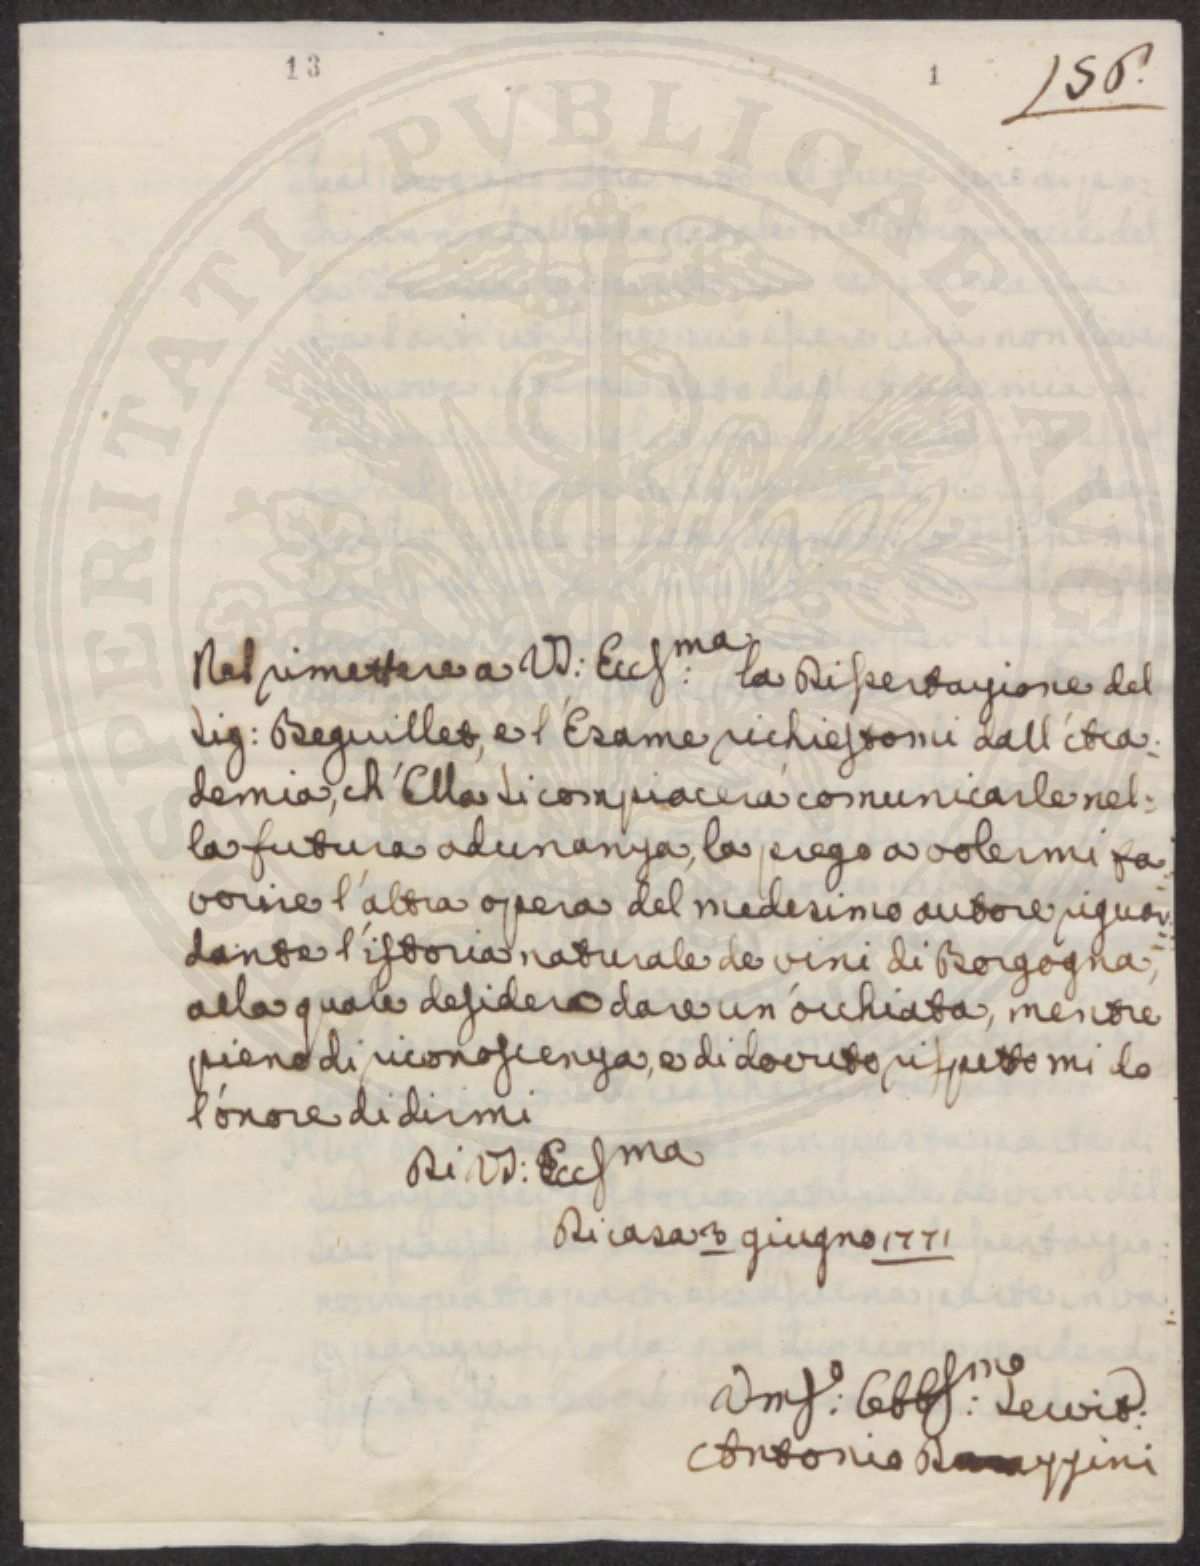 13
1
156.
Nel rimettere a VS: Eccſma: la Diſsertazione del
Sig: Beguillet, e l'Esame richieſtomi dall'Acca:
demia, ch'Ella Si compiacerà comunicarle nel:
la futura adunanza, la prego a volermi fa:
vorire l'altra opera del medesimo autore riguar:
dante l'iſtoria naturale de vini di Borgogna,
alla quale deſidero dare un'occhiata, mentre
pieno di riconoſcenza, e di dovuto riſpetto mi do
l'onore di dirmi
Di VS: Eccſma
Di casa 3 giugno 1771
Vmſo: Obbſmo: Servit:
Antonio
PROSPERITATI PVBLICAE AVGENDAE